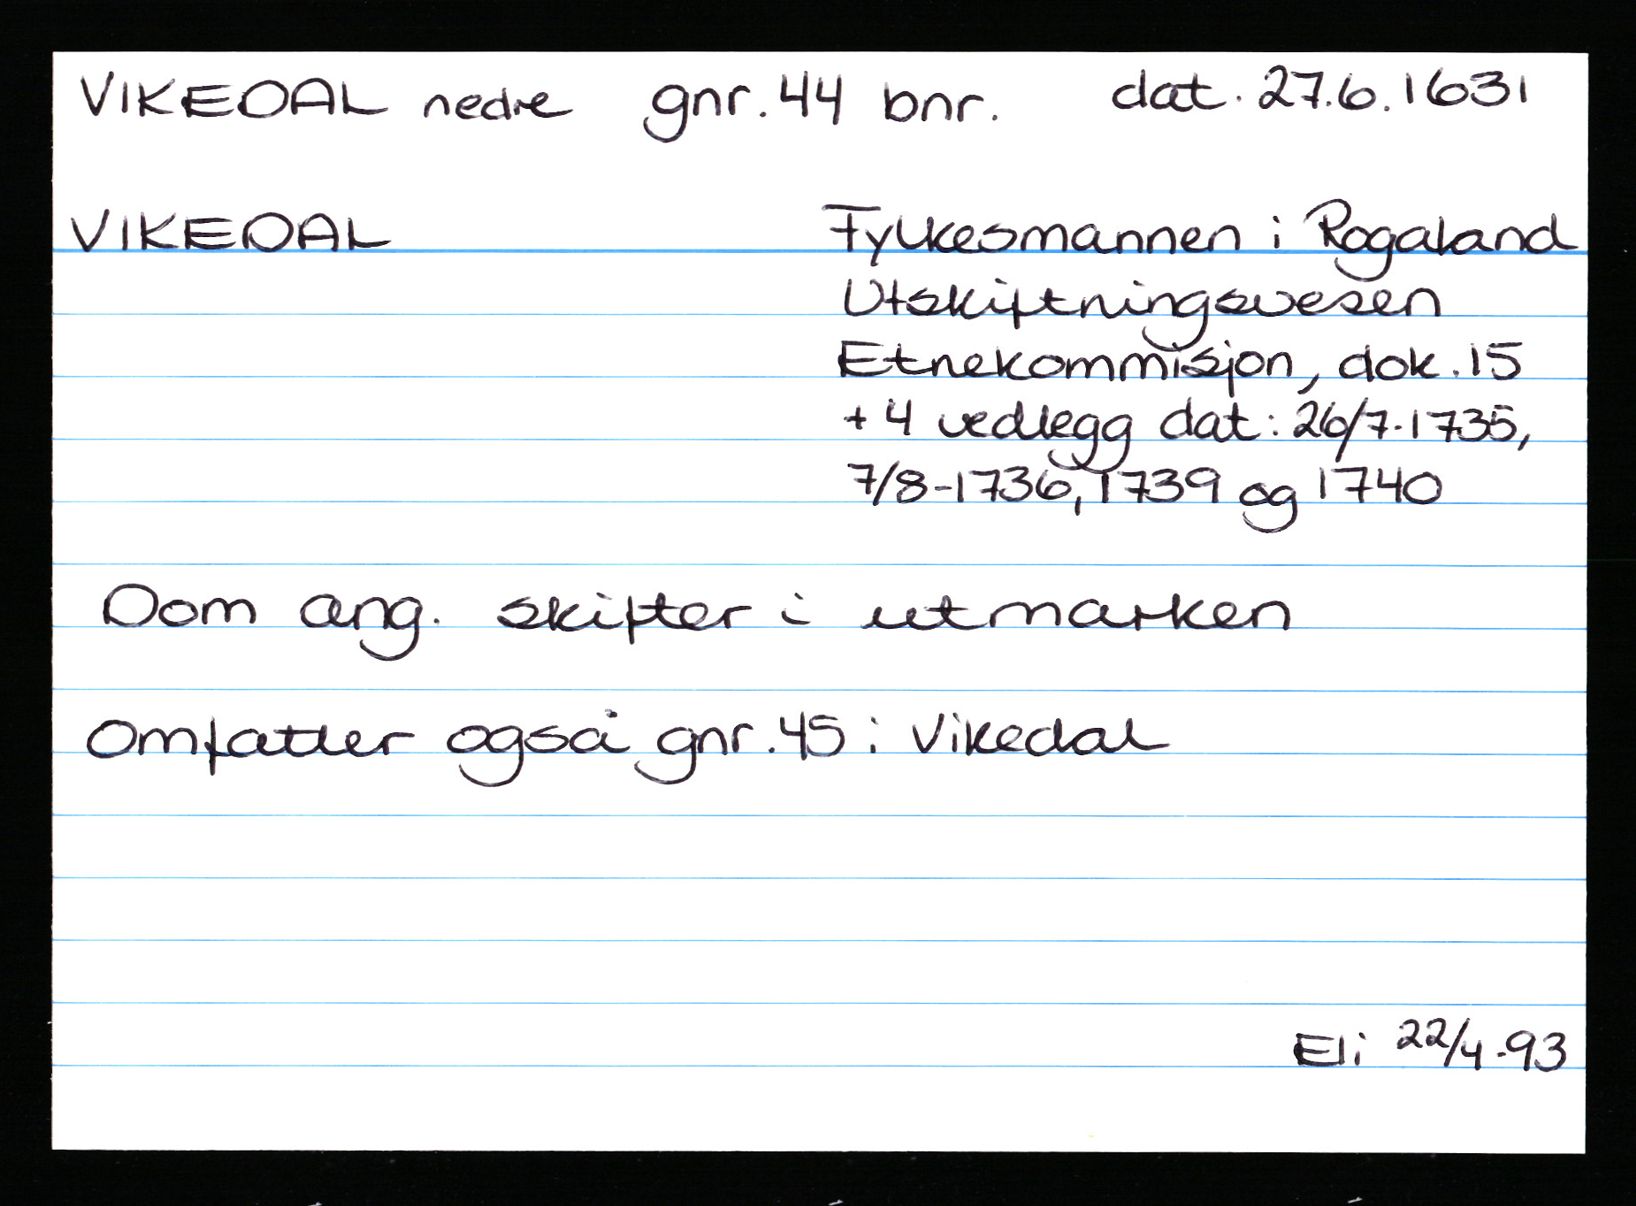 VIKEDAL nedre gnr. 44 bnr. dat. 27.6.1631
VIKEDAL Fylkesmannen i Rogaland
Utskiftningsvesen
Etnekommisjon, dok. 15
+ 4 vedlegg dat: 26/7-1735,
7/8-1736, 1739 og 1740
Dom ang. skifter i utmarken
Omfatter også gnr. 45 i Vikedal
Eli 22/4-93